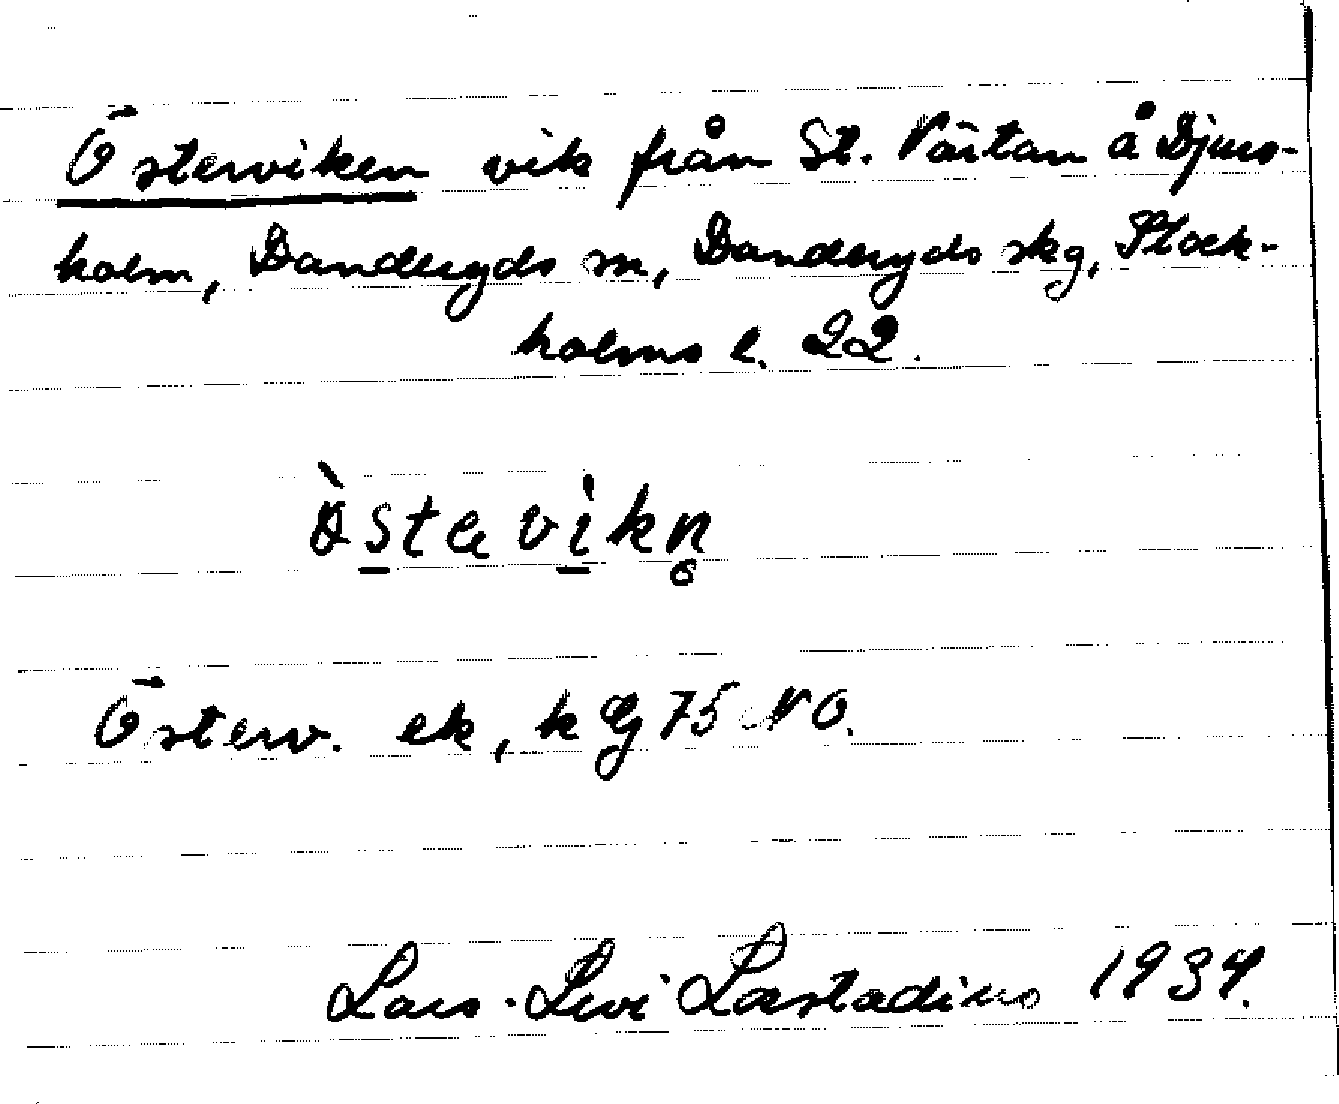 Österviken vik från St. Värtan å Djurs-
holm, Danderyds sn, Danderyds skg, Stock-
holms l. 22.
ö̀stɑvikn̥
Österv. ek, k Lg 75 NO.
Lars-Levi Læstadius 1934.